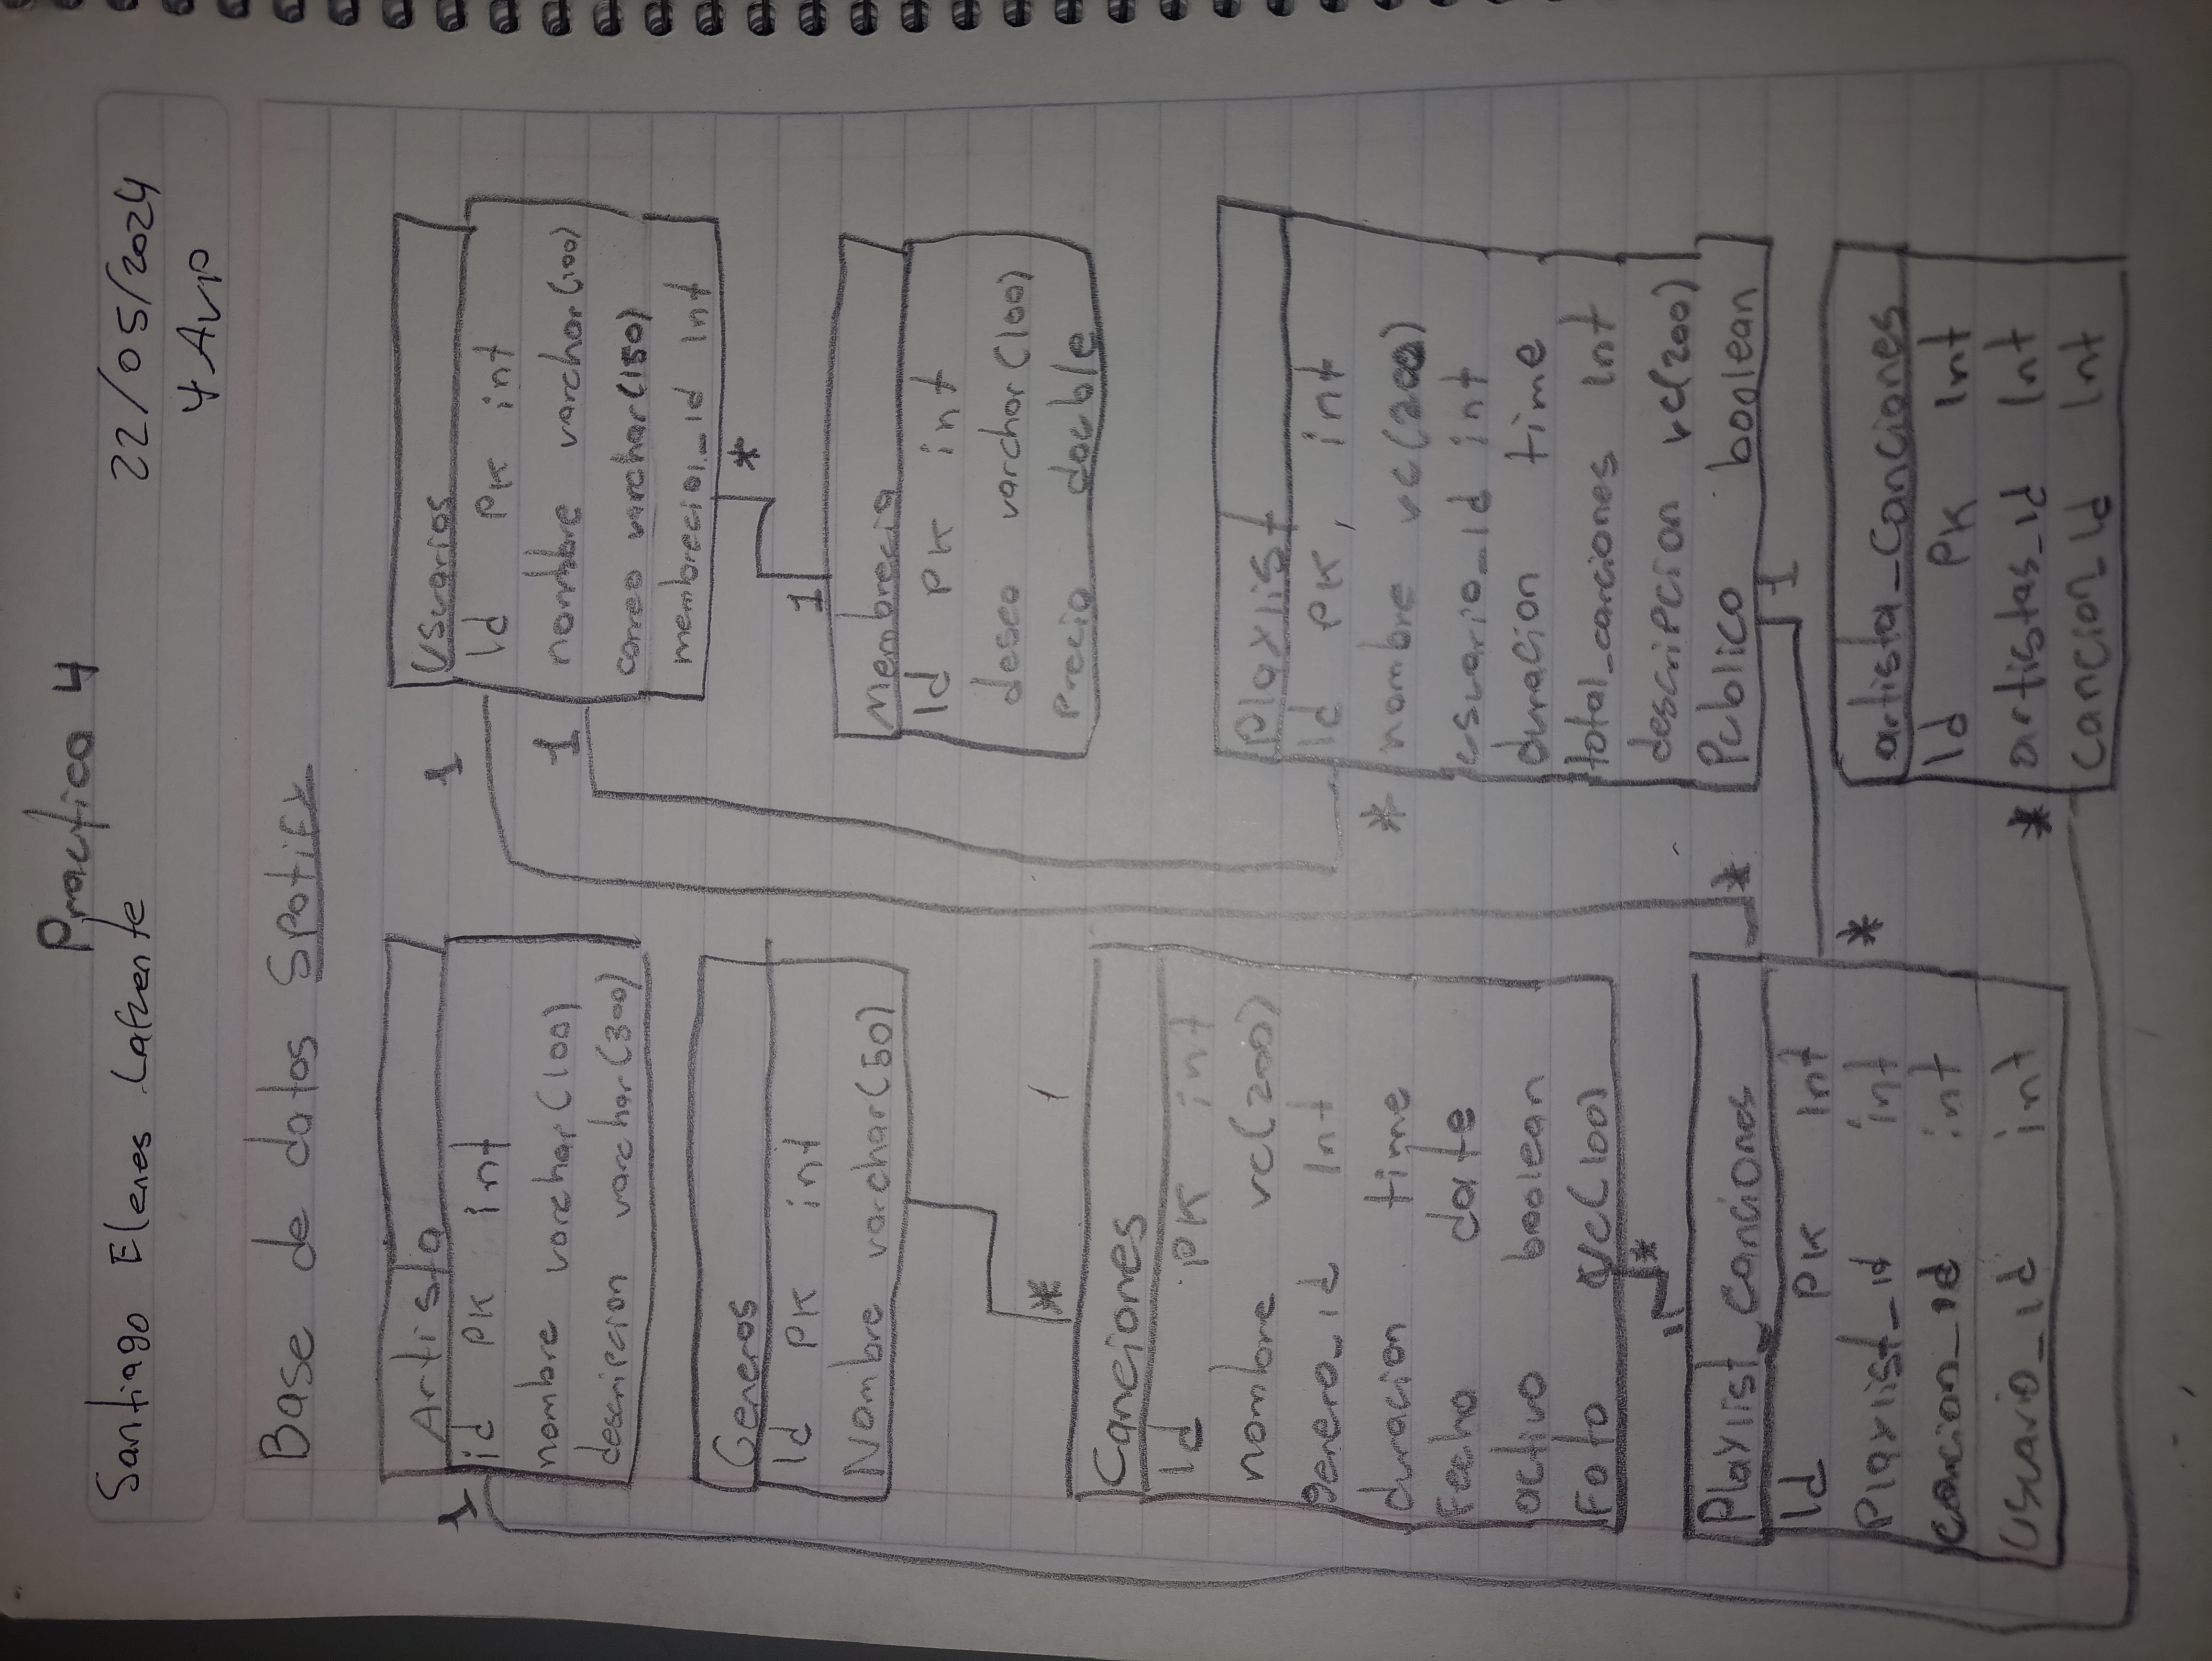 Practica 4
Santiago Elenes Lafuente 22/05/2024
4 AVP
Base de datos Spotify
Artista
id PK int
nombre varchar(100)
descripcion varchar(300)
Generos
Id PK int
Nombre varchar(50)
*
Canciones
Id PK int
nombre vc(200)
genero_id Int
duracion time
Fecha date
activo boolean
Foto vc(100)
*
Playlist_canciones
Id PK Int
Playlist_id int
cancion_id int
Usuario_id int
1
1
1
Usuarios
Id PK int
nombre varchar(100)
correo varchar(150)
membrecia_id Int
*
1
Membrecia
Id PK int
varchar(100)
Precio double
Playlist
Id PK, int
* nombre vc(200)
usuario_id int
duracion time
total_canciones Int
descripcion vc(200)
Publico boolean
*
1
*
artista_canciones
Id PK Int
* artistas_id Int
cancion_Id Int